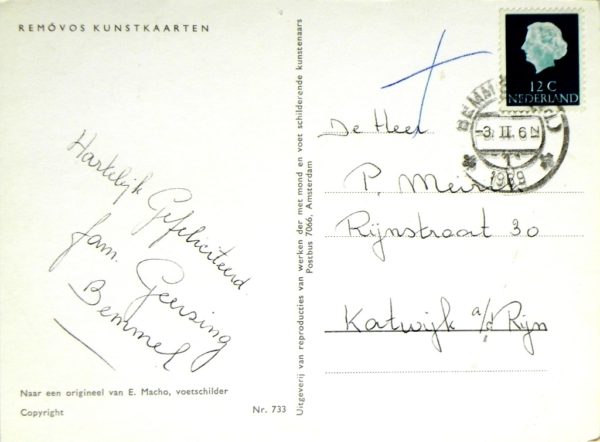 REMÓVOS KUNSTKAARTEN
Hartelijk Gefeliciteerd
fam. Geersing
Bemmel
Naar een origineel van E. Macho, voetschilder
Copyright
Nr. 733
Uitgeverij van reproducties van werken der met mond en voet schilderende kunstenaars
Postbus 7066, Amsterdam
12 C
NEDERLAND
-3 II. 6
1969
De Heer
P.
Rijnstraat 30
Katwijk a/d Rijn